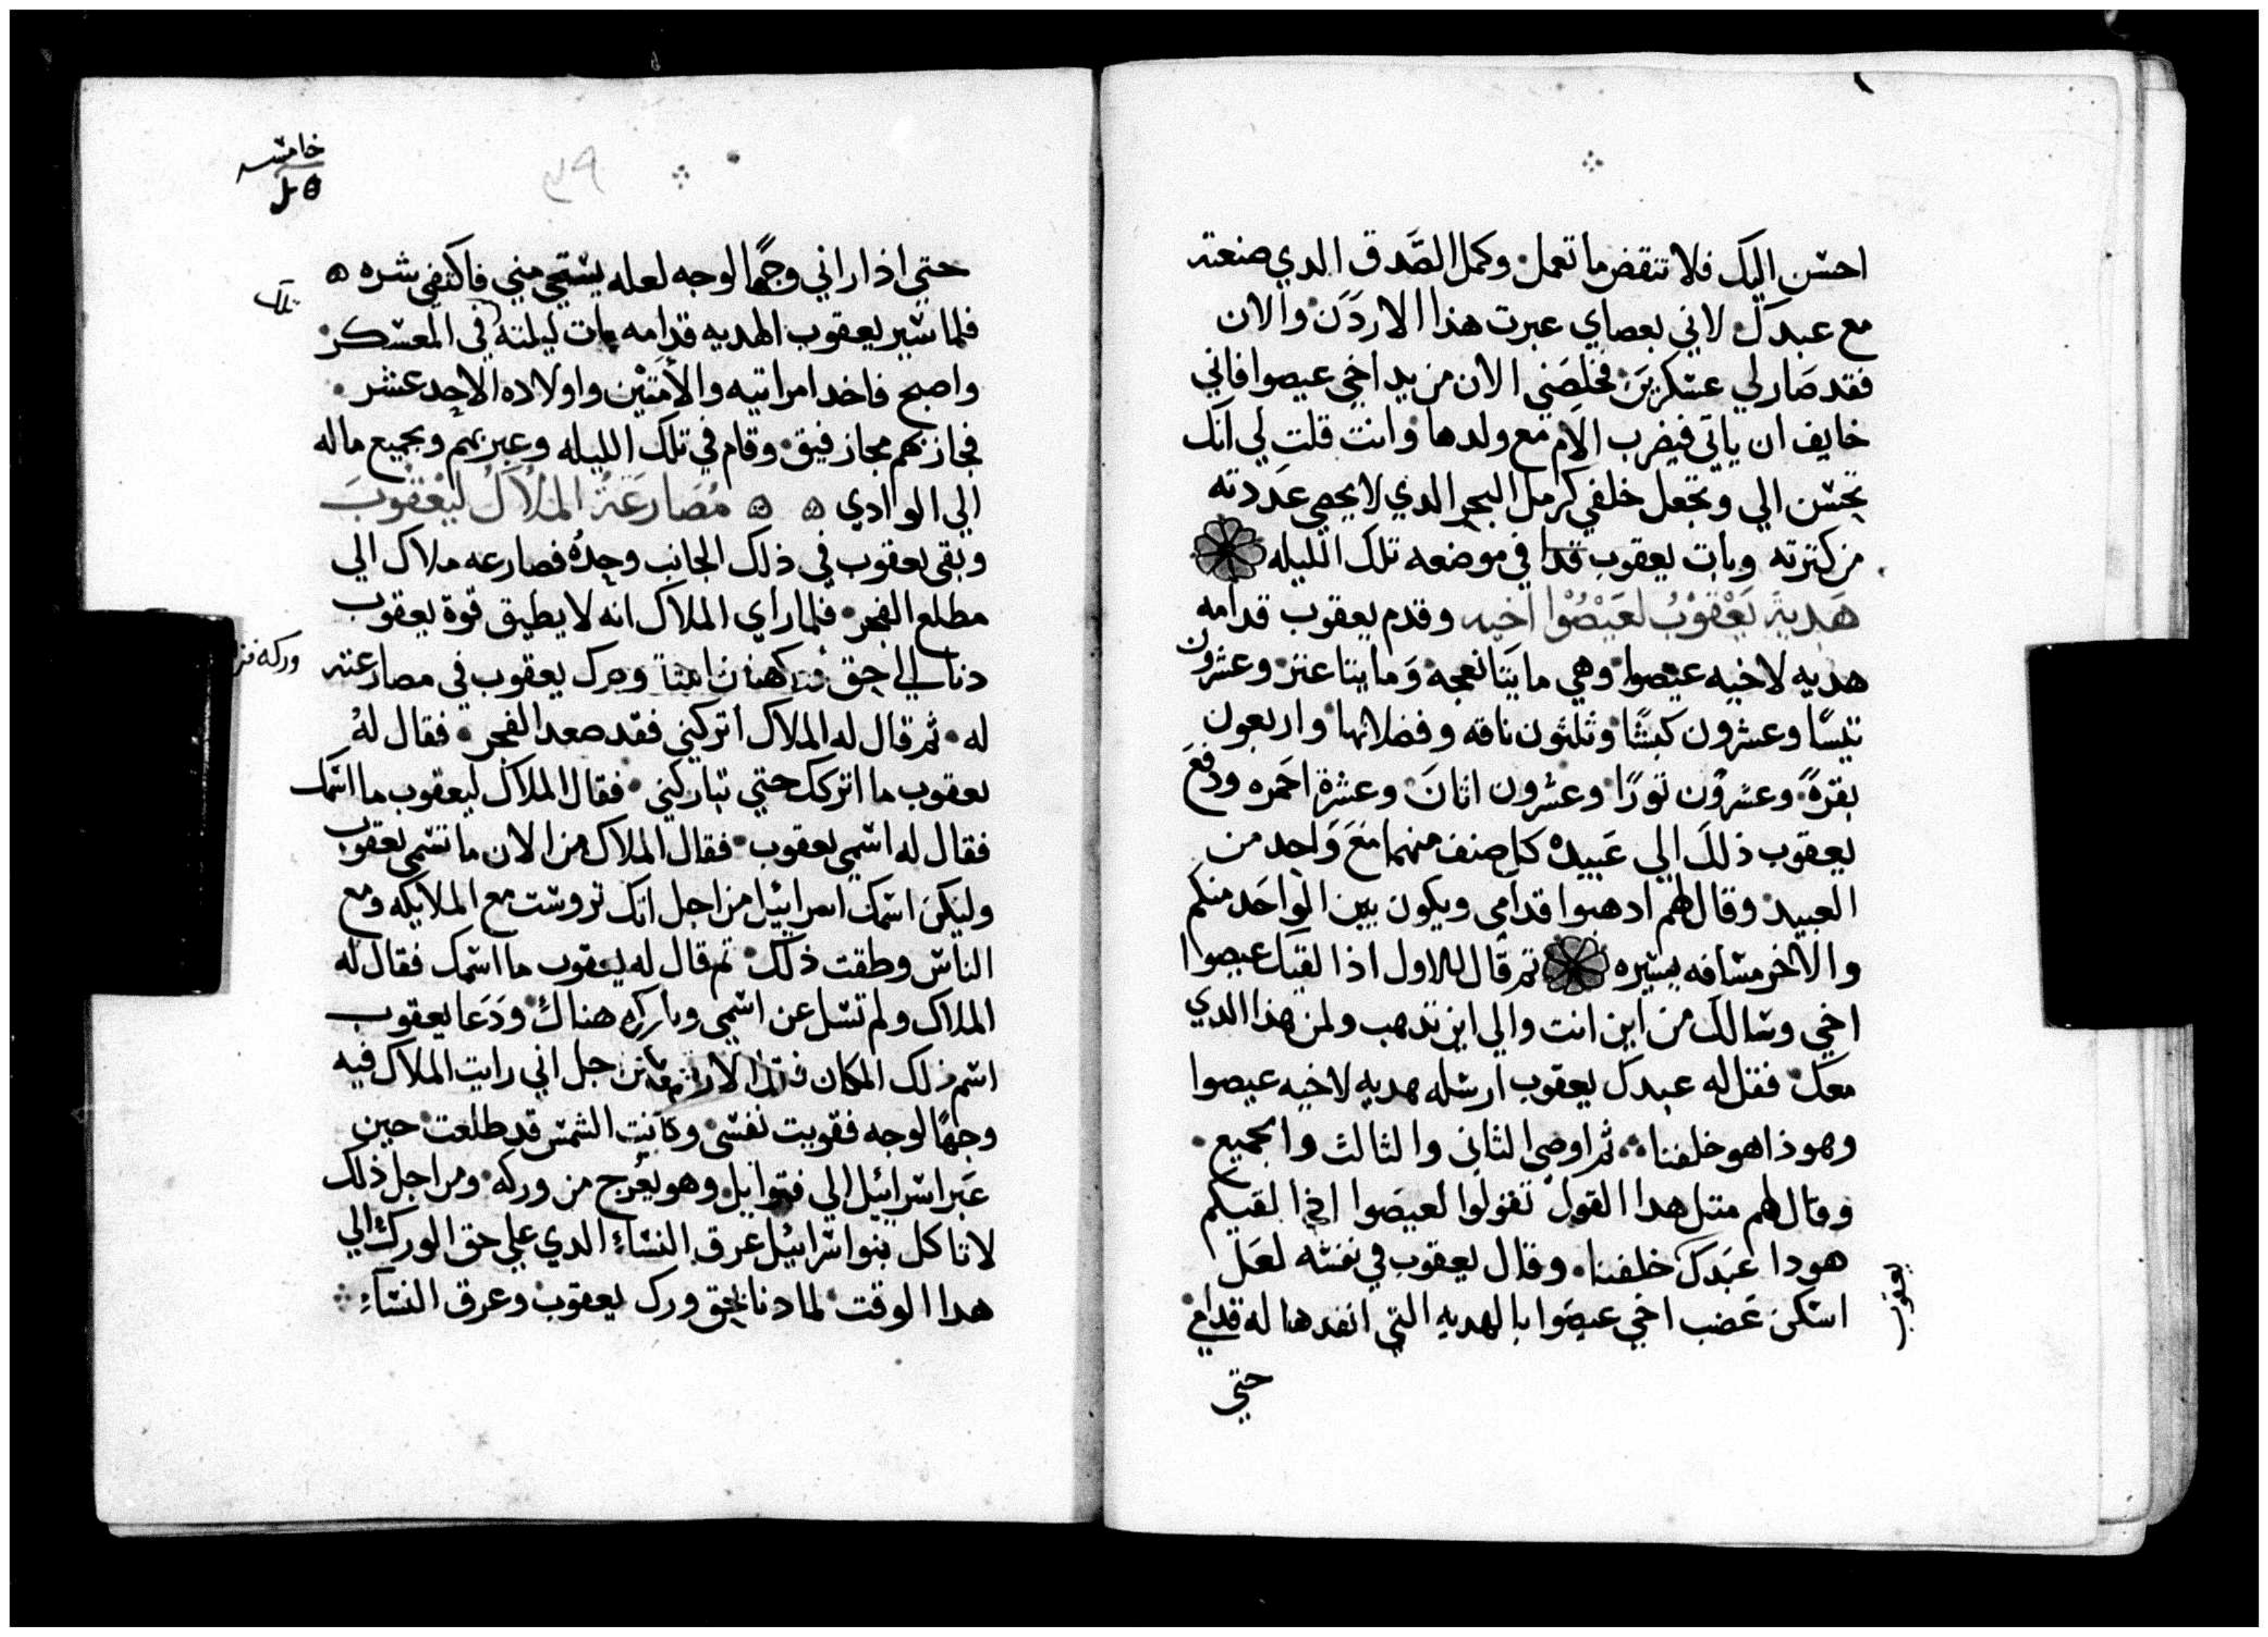 احسن اليك فلا تنقض ما تعمل وكمل الصَّدق الدي صنعته
مع عبدك لاني بعصاي عبرت هذا الاردَن والان
فقد صَار لي عسكرين فخلصَني الان من يد اخي عيصوا فاني
خايف ان ياتي فيضرب الام مع ولدها وانت قلت لي انك
تحسن الي وتجعل خلفي كرمل البحر الدي لا يحصي عَددته
من كترته وبات يعقوب في موضعه تلك الليله
هَدية يَعْقوْبُ لعَيْصُوْا اخيه وقدم يعقوب قدامه
هديه لاخيه عيصوا وهي مايتَا نعجه وَمايتا عنز وعشرون
تيسًا وعشرون كبشًا وثلثون ناقه وفصلانها واربعون
بقرةً وعشرون تورًا وعشرون اتانَ وعشرة احمره ودفعَ
يعقوب ذلك الي عَبيده كل صنف منهما معَ وَاحد من
العبيد وقال لهم ادهبوا قدامي ويكون بين الواحَد منكم
والاخر مسافه يسيره تم قال للاول اذا لقيك عيصوا
اخي وسالك من اين انت والي اين تدهب ولمن هذا الدي
معك فقل له عبدك يعقوب ارسله هديه لاخيه عيصوا
وهوذا هو خلفنا ثم اوصي الثاني والثالث والجميع
وقال لهم متل هدا القول تقولوا لعيصَوا اذا لقيكم
هودا عَبَدك خلفنا وقال يعقوب في نفسه لعَل
اسكن غضب اخي عيصَوا بالهديه التي انفدها له قدامي
يعقوب
حتي
خامسه
٣٩
حتي اذا راني وجهًا لوجه لعله يستحي مني فاكتفي شره
فلما سير يعقوب الهديه قدامه بات ليلته في المعسكر
تلك
واصبح فاخد امراتيه والأمتَيْن واولاده الاحد عشر
فجاز بهم مجاز فيق وقام في تلك الليله وعبر بهم وبجميع ماله
الي الوادي مُصَارعَةُ المَلاَكُ ليَعْقوُبَ
وبقي يعقوب في ذلك الجانب وحدهُ فصارعه ملاك الي
مطلع الفجر فلما راي الملاك انه لا يطيق قوة يعقوب
دنا الي حق ورك يعقوب في مصارعته
وركه
له ثم قال له الملاك اتركني فقد صعد الفجر فقال لهُ
يعقوب ما اتركك حتي تباركني فقال الملاك ليعقوب ما اسمك
فقال له اسمي يعقوب فقال الملاك من الان ما تسمي يعقوب
وليكن اسمك اسراييل من اجل انك تروست مع الملايكه ومع
الناس وطقت ذلك تم قال له يعقوب ما اسمك فقال له
الملاك ولم تسل عن اسمي وباركه هناك وَدَعَا يعقوب
اسم ذلك المكان من اجل اني رايت الملاك فيه
وجهًا لوجه فقويت نفسي وكانت الشمس قد طلعت حين
عَبر اسراييل الي فنوايل وهو يعرج من وركه ومن اجل ذلك
لا تاكل بنوا سراييل عرق النسَاءِ الدي علي حق الورك الي
هدا الوقت لما دنا بحق ورك يعقوبْ وعرق النسَاءِ